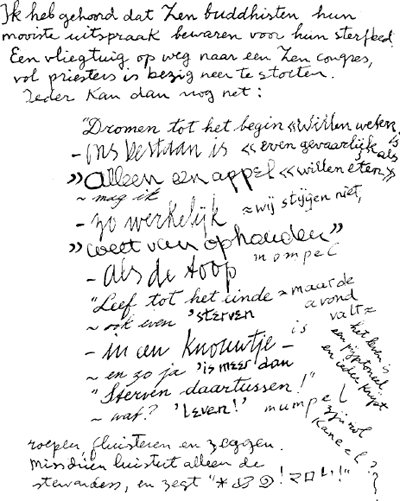 Ik heb gehoord dat Zen buddhisten hun
mooiste uitspraak bewaren voor hun sterfbed.
Een vliegtuig op weg naar een Zen congres,
vol priesters is bezig neer te storten.
Ieder kan dan nog net:
"Dromen tot het begin «Willen weten is
- ons bestaan is «even gevaarlijk als
»alleen een appel «willen eten»
~ mag ik
- zo werkelijk ~ wij stijgen niet,
»weet van ophouden» mompel
- als de hoop
"Leef tot het einde ~ maar de
~ ook even 'sterven avond
valt ~
- in een knouwtje - is
~ en zo ja 'is meer dan
"Sterven daartussen!"
~ wat? 'Leven!' mumpel
het leven is
en ieder krijgt
zijn rol
Kaneel??
roepen fluisteren en zeggen.
Misschien luistert alleen de
stewardess, en zegt "